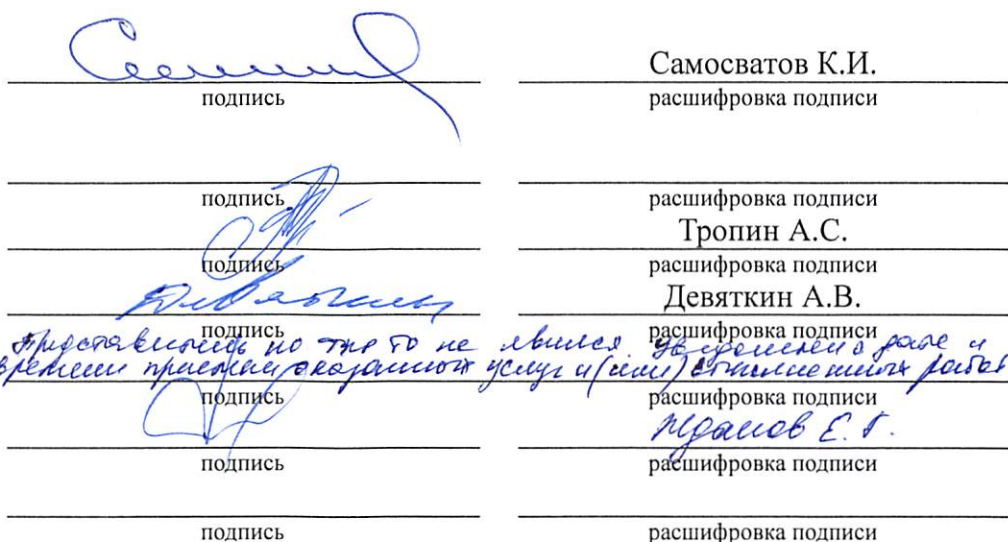 Самосватов К.И.
подпись расшифровка подписи
подпись расшифровка подписи
Тропин А.С.
подпись расшифровка подписи
Девяткин А.В.
подпись расшифровка подписи
не явился. Уведомлен о дате и
времени приемки оказанных услуг и (или) выполненных работ
подпись расшифровка подписи
Жданов Е.Г.
подпись расшифровка подписи
подпись расшифровка подписи